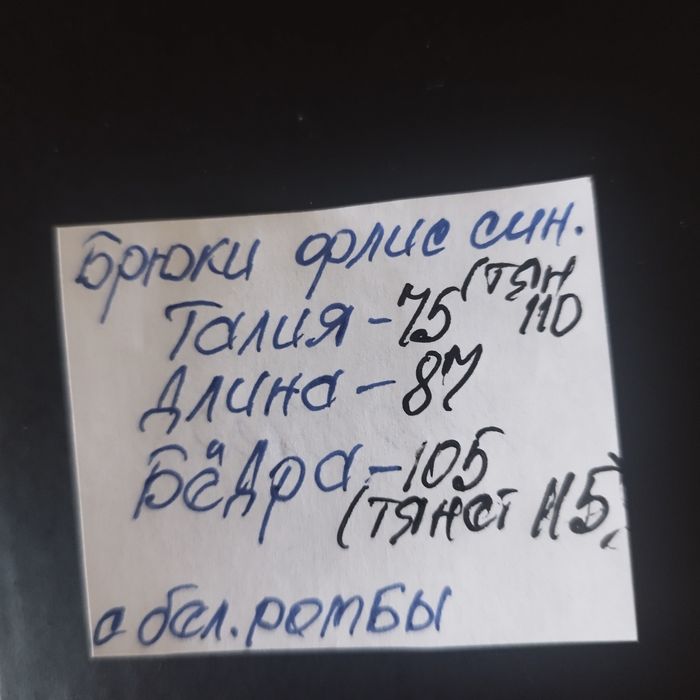 Брюки флис син.
Талия - 75 (тян 110
Длина - 87
Бёдра - 105
(тянст 115)
с бел. ромбы